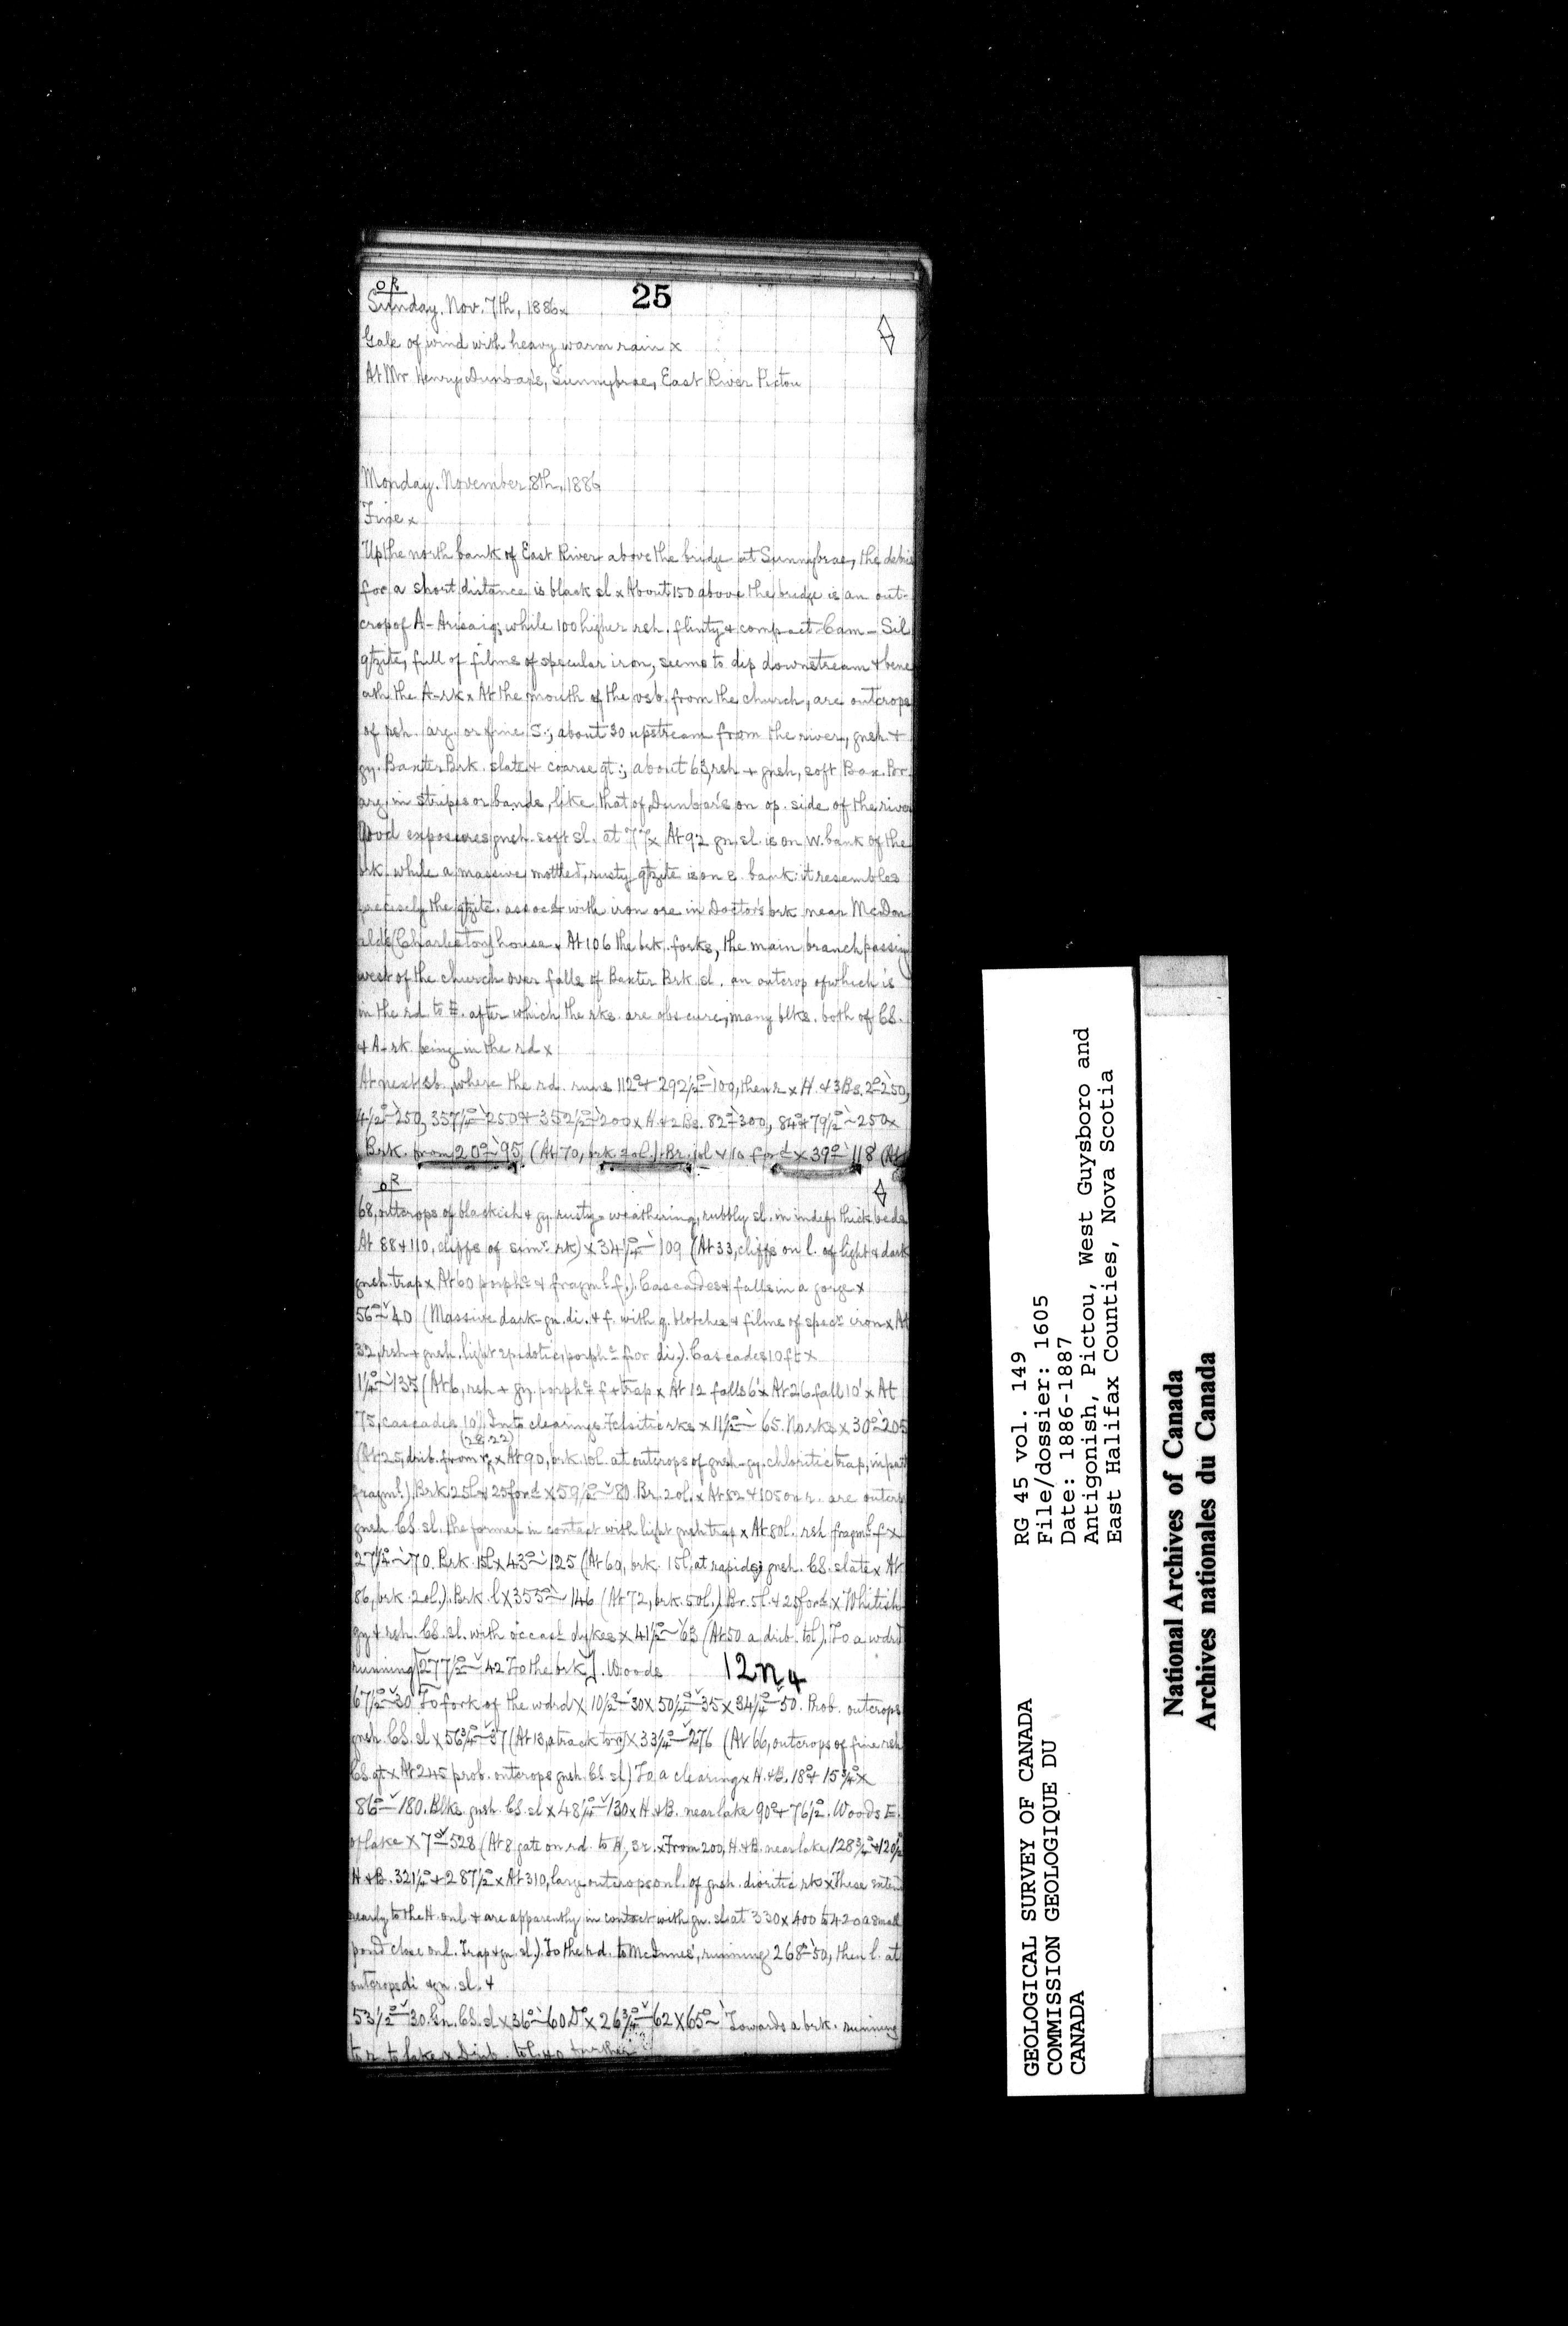 OR
25
Sunday. Nov. 7th, 1886x
Gale of wind with heavy warm rain x
At Mr Henry Dunbar's, Sunnybrae, East River Pictou
Monday. November 8th, 1886
Fine x
Up the north bank of East River above the bridge at Sunnybrae, the debris
for a short distance is black sl x About 150 above the bridge is an out-
crop of A-Arisaig; while 100 higher rsh. flinty & compact Cam-Sil
qtzite, full of films of specular iron, seems to dip downstream & bene
ath the A-rk x At the mouth of the vsb. from the church, are outcrops
of psh. arg. or fine S.; about 30 upstream from the river, gnsh. &
gy. Baxter Brk. slate & coarse qt:; about 63, rsh & gnsh, soft Bax. Br.
arg. in stripes or bands, like that of Dunbar's on op. side of the river
Good exposures gnsh. soft sl. at 77x At 92 gn. sl. is on W. bank of the
brk. while a massive mottled, rusty qtzite is on E. bank: it resembles
precisely the qtzite. assocd with iron ore in Doctor's brk near McDon
ald's (Charleston) house x At 106 the brk. forks, the main branch passing
west of the church over falls of Baxter Brk sl. an outcrop of which is
in the rd to E. after which the rks. are obscure, many blks. both of CS.
& A-rk being in the rd x
At next sb., where the rd. runs 112° & 292½°-100, then r x H. & 3 Bs. 2°-250,
4½°-250, 357½°-250 & 352½°-200 x H. & 2 Bs. 82°-300, 84° & 79½°-250x
Brk. from 20°-95 (At 70, brk 20l.) Br. jol & 10 ford x 39°-118 (At
OR
68, outcrops of blackish & gy. rusty-weathering, rubbly sl. in indef. thick beds
At 88 & 110, cliffs of simr rk) x 34¼°-109 (At 33, cliffs on l. of light & dark
gnsh. trap x At 60 porphc & fragml f.). Cascades & falls in a gorge x
56°-40 (Massive dark-gn. di. & f. with q. blotches & films of specr iron x At
32, rsh & gnsh. light epidotic, porphc f or di.). Cascades 10 ft x
1¼°-135 (At 6, rsh & gy. porphc f & trap x At 12 falls 6' x At 26 fall 10' x At
75, cascades 10') Into clearing. Felsitic rks x 11½°- 65. No rks x 30°-205
(28.22)
(At 25, drib. from r. x At 90, brk. 10l. at outcrops of gnsh-gy. chloritic trap, in part
fragml.) Brk 25l & 25 ford x 59½°-80 Br. 20l. x At 82 & 105 on r. are outcrps
gnsh. CS. sl. the former in contact with light gnsh trap x At 80l. rsh fragml f x
27¼°-70. Brk 15l x 43°-125 (At 60, brk. 15l, at rapids; gnsh. CS. slate x At
86, brk. 20l.). Brk. l x 355°- 146 (At 72, brk. 50l.) Br. 5l. & 25 ford x Whitish
gy & rsh. CS. sl. with occasl dykes x 41½°-63 (At 50 a drib. to l). To a wdrd
running [277½°-42 To the brk]. Woods
12 n 4
67½°-30 To fork of the wdrd x 10½°-30 x 50¼°-35 x 34¼°-50. Prob. outcrops
gnsh. CS. sl x 56¾°-37 (At 13, a track to r) x 33¼°-276 (At 66, outcrops of fine rsh
CS. qt x At 245 prob. outcrops gnsh. CS. sl) To a clearing x H. & B. 18° & 15¾°x
86°-180. Blks gnsh. CS. sl x 48¼°-130 x H. & B. near lake 90° & 76½°. Woods E.
of lake x 7°-528 (At 8 gate on rd. to H, 3r. x From 200, H. & B. near lake 128¾° & 120½°
H & B. 321¼° & 287½° x At 310, large outcrops on l. of gnsh. dioritic rk x These extend
nearly to the H. on l & are apparently in contact with gn. sl. at 330 x 400 to 420 a small
pond close on l. Trap & gn. sl.) To the rd. to McInnes', running 268°-50, then l. at
outcrops di & gn. sl. x
53½°-30. Gn. CS. sl x 36°-60 Do x 26¾°-62 x 65°- Towards a brk. running
to r. to lake x Drib. to l.
RG 45 vol. 149
File/dossier: 1605
Date: 1886-1887
Antigonish, Pictou, West Guysboro and
East Halifax Counties, Nova Scotia
GEOLOGICAL SURVEY OF CANADA
COMMISSION GEOLOGIQUE DU
CANADA
National Archives of Canada
Archives nationales du Canada